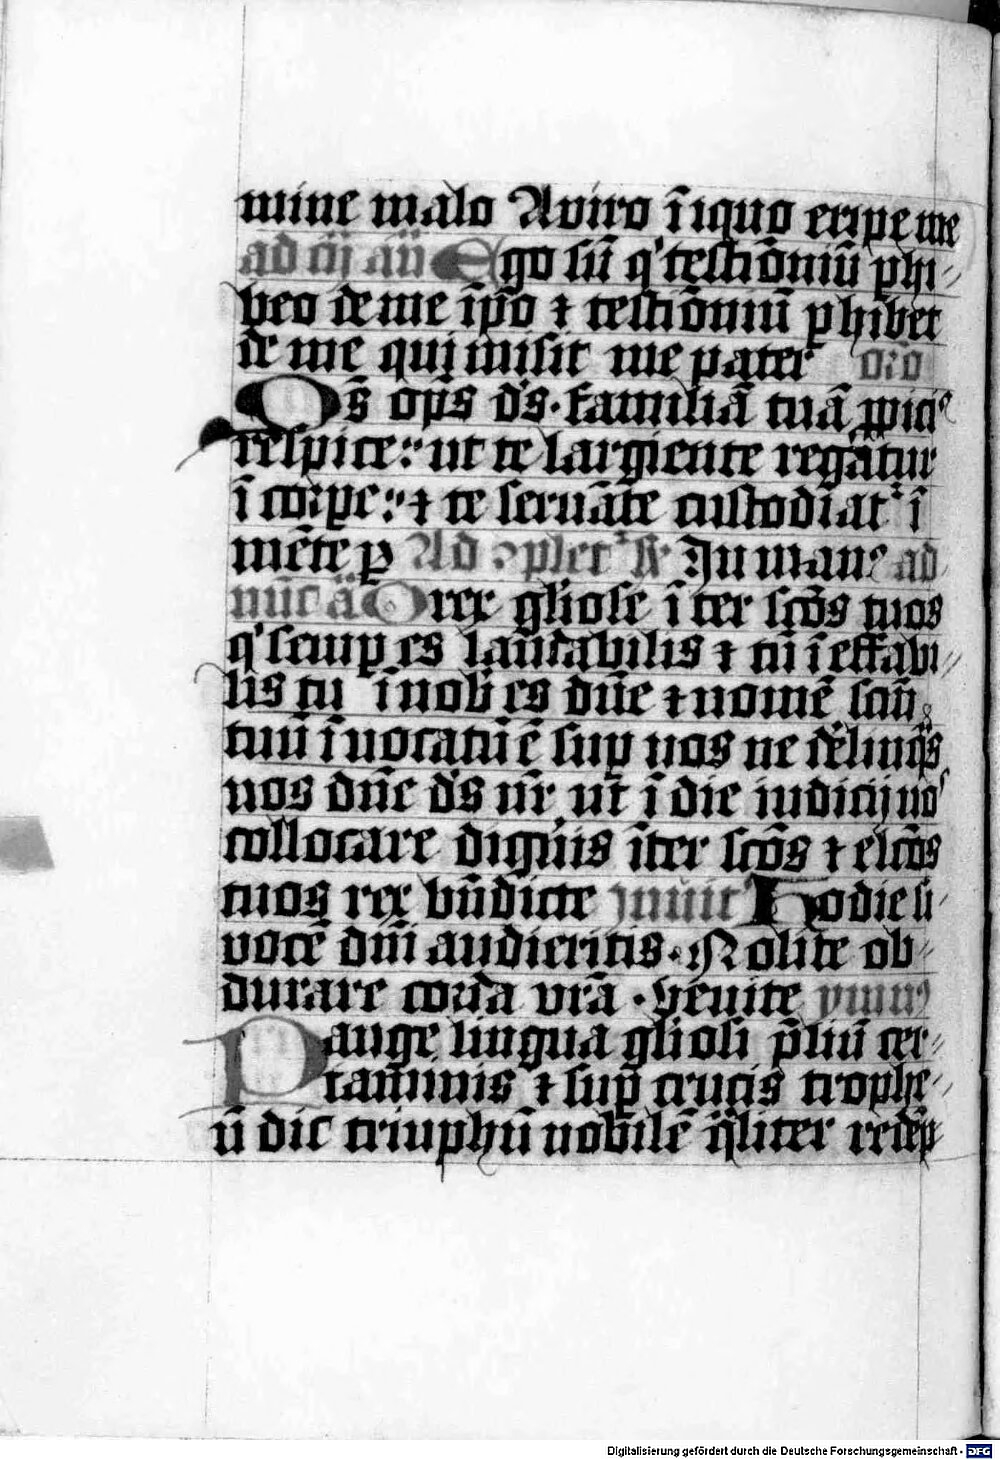 mine malo A viro īiquo eripe me
ad m̄ an̄ Ego sū q' testīoniū phi-
beo de me īpō ⁊ testīoniū phibet
de me qui misit me pater orō
Qs̄ op̄s d's. familiā tuā ꝓpici'
respice: ut te largiente regat'ur
ī corpe: ⁊ te seruāte custodiat' ī
mēte p Ad ꝯplet' Jn man' ad
nūc ā O rex gl'iose īter scōs tuos
q' semp es laudabilis ⁊ tn̄ īeffabi-
lis tu ī nob' es dn̄e ⁊ nomē scm̄
tuū īuocatū ē sup nos ne dēlinq's
nos dn̄e d's nr̄ ut ī die iudicij nos
collocare digneris īter scōs ⁊ el'cōs
tuos rex bn̄dicte Jnuit' Hodie si
vocē dm̄ audieritis. Nolite ob-
durare corda vr̄a. Venite ymn'
Pange lingua gl'iosi p̄liū cer-
taminis ⁊ sup crucis trophe-
ū dic triūphū nobilē q̄liter redēp